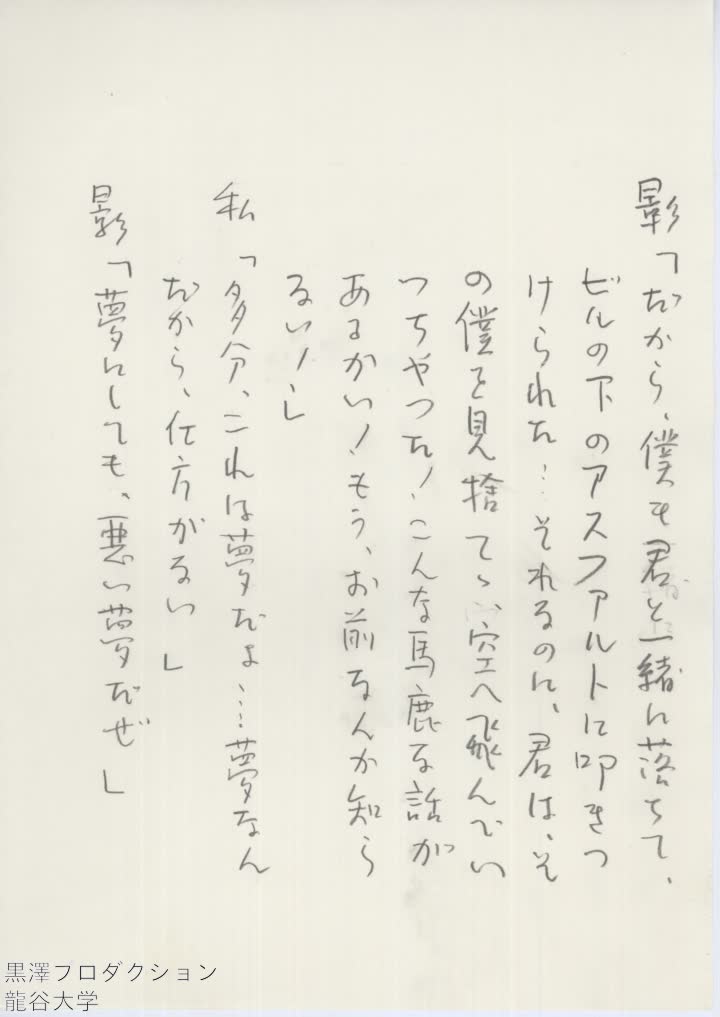 影「だから、僕も君と一緒に落ちて、
ビルの下のアスファルトに叩きつ
けられた…それなのに、君は、そ
の僕を見捨てゝ、空へ飛んでい
つちやつた！こんな馬鹿な話が
あるかい！もう、お前なんか知ら
ない！」
私「多分、これは夢だよ…夢なん
だから、仕方がない」
影「夢にしても、悪い夢だぜ」
黒澤プロダクション
龍谷大学